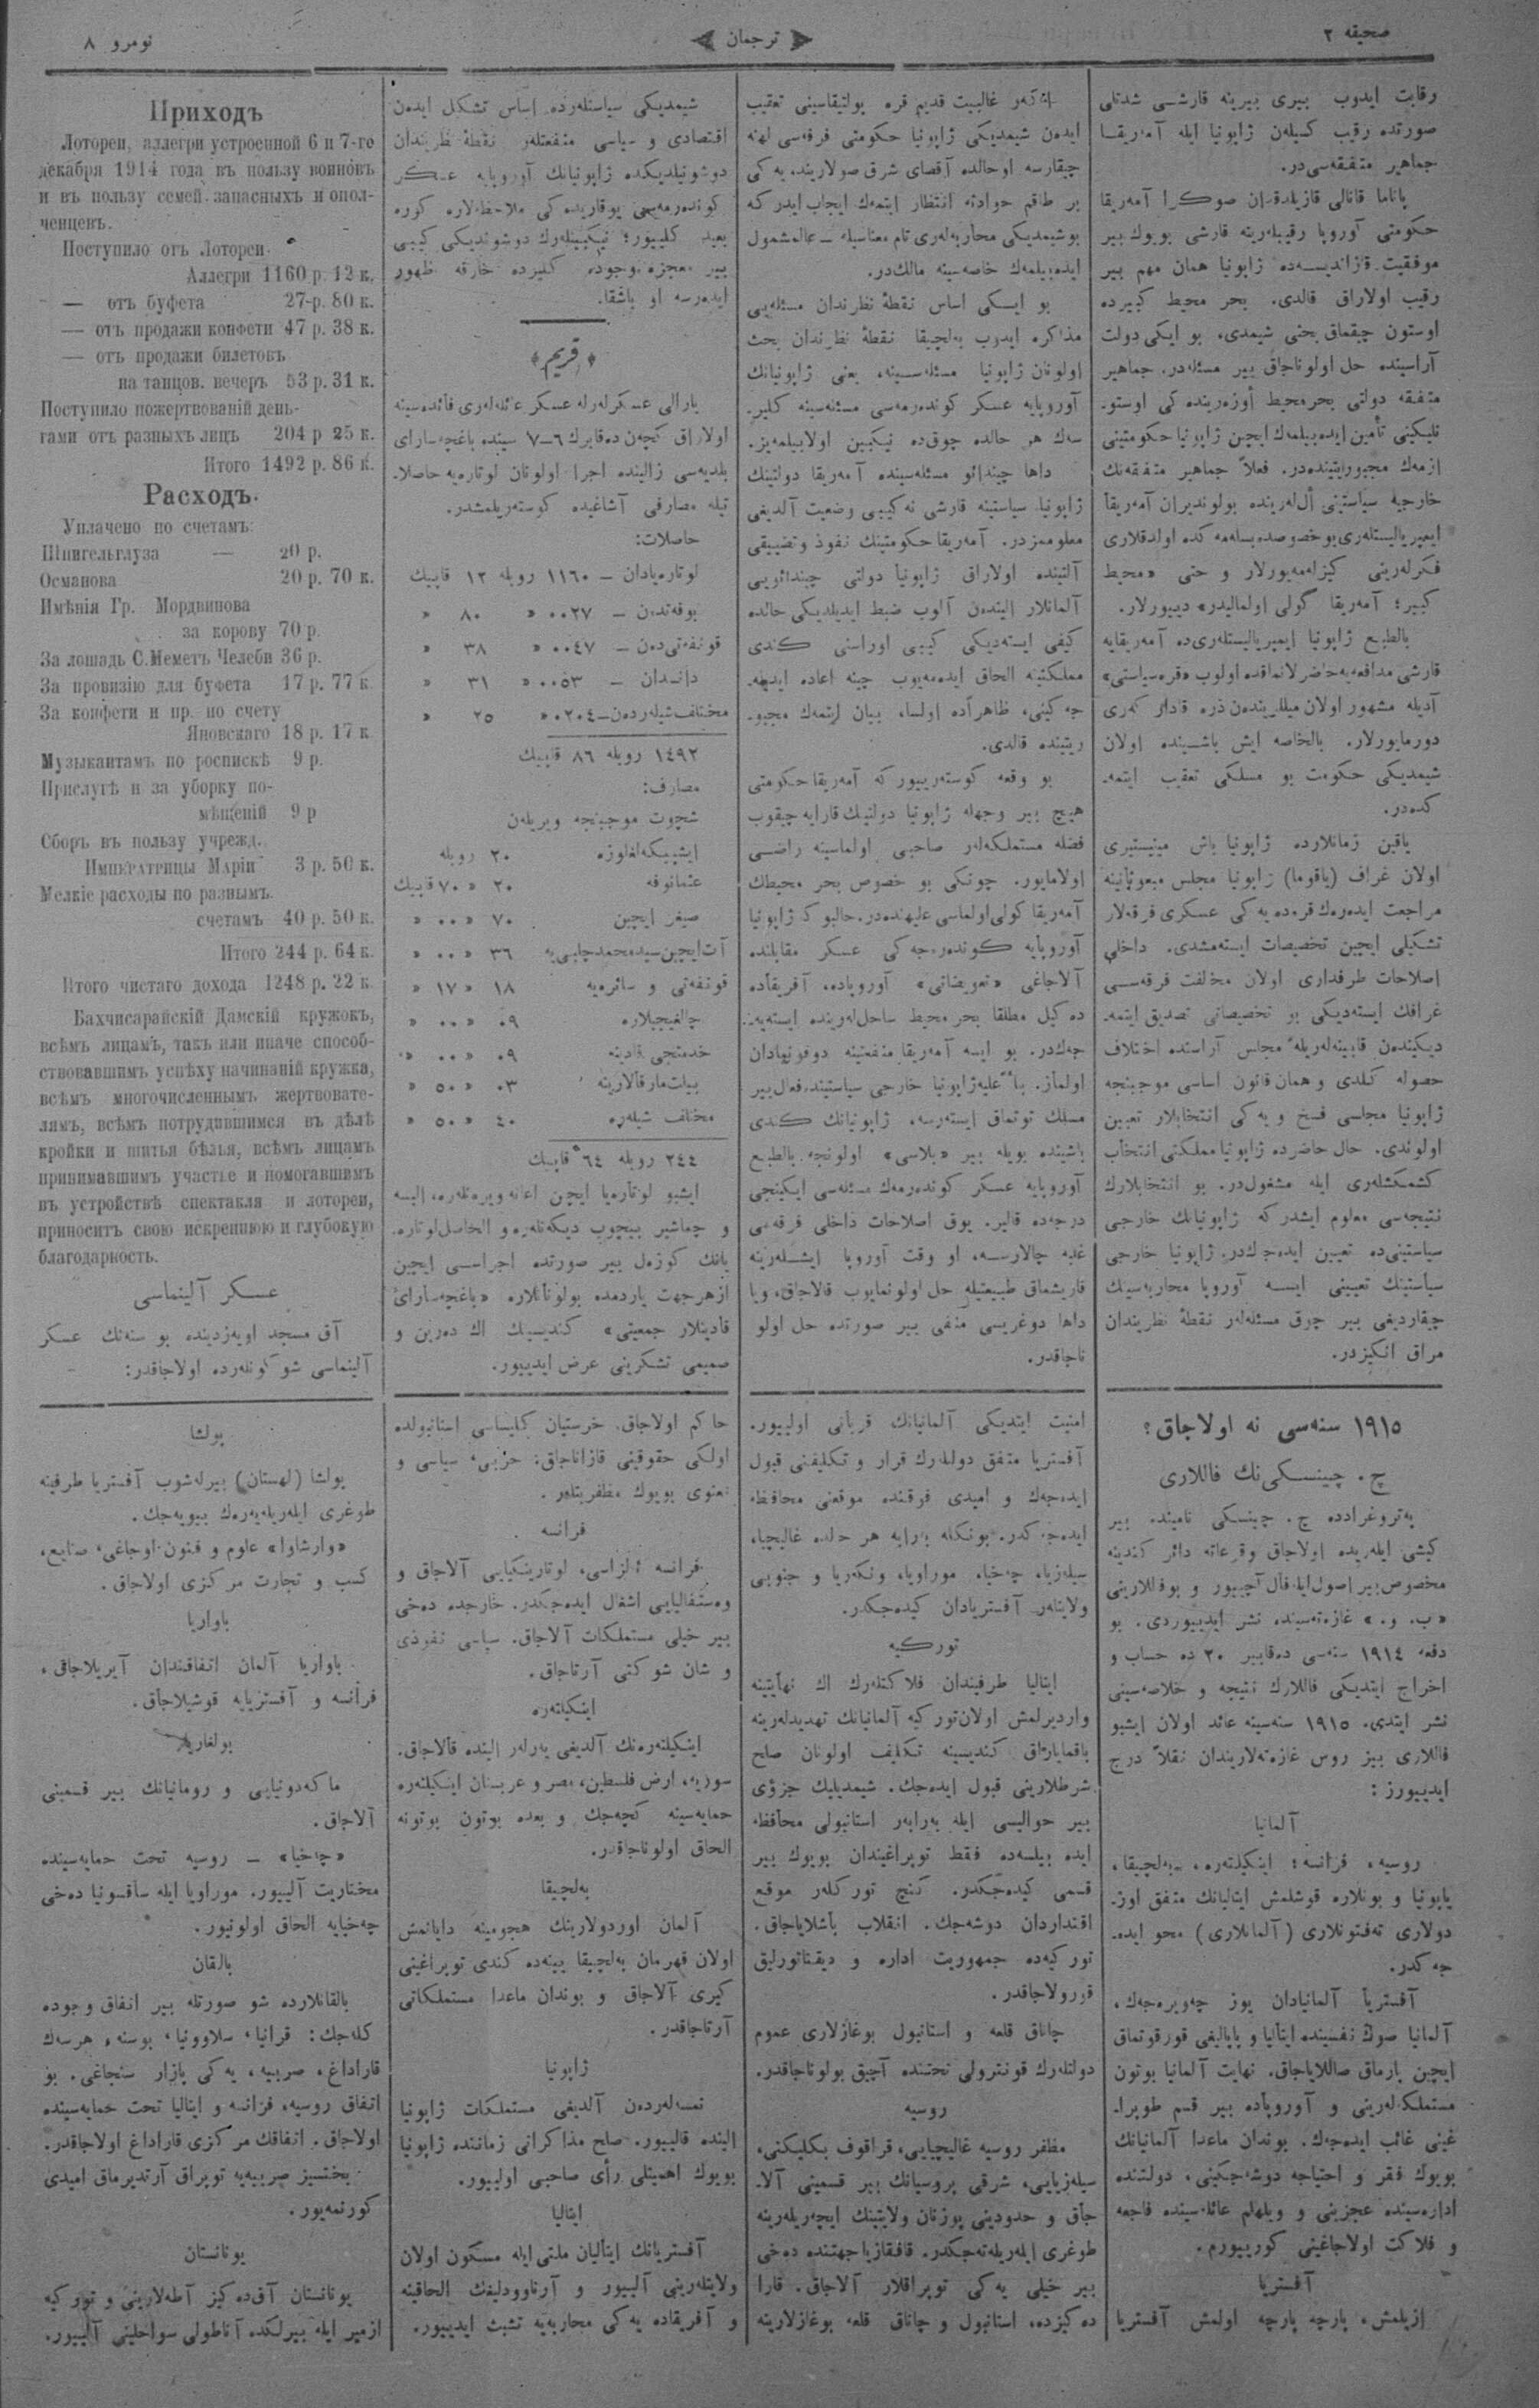 صحیفه ٢
ترجمان
نومرو ٨
رقابت ایدوب بیری بیرینه قارشی شدتلی
صورتده رقیب کسیلەن ژاپونیا ایله آمەریقا
جماهیر متفقەسی‌در.
پاناما قانالی قازیلدقدان صوکرا آمەریقا
حکومتی آوروپا رقیبلەرینه قارشی بویوك بیر
موفقیت قازاندیسەده ژاپونیا همان مهم بیر
رقیب اولاراق قالدی. بحر محیط کبیرده
اوستون چیقماق بحثی شیمدی، بو ایکی دولت
آراسینده حل اولوناجاق بیر مسئلەدر. جماهیر
متفقه دولتی بحر محیط أوزەرینده کی اوستو-
نلیکینی تأمین ایدەبیلمەك ایچین ژاپونیا حکومتینی
ازمەك مجبوریتینده‌در. فعلاً جماهیر متفقەنك
خارجیه سیاستینی أل‌لەرینده بولوندیران آمەریقا
ایمپریالیستلەری بو خصوصده بسلەمەکده اولدقلاری
فکرلەرینی کیزلەمەیورلار و حتی «محیط
کبیر؛ آمەریقا گولی اولمالیدر» دییورلار.
بالطبع ژاپونیا ایمپریالیستلەری‌ده آمەریقایه
قارشی مدافعەیه حاضرلانماقده اولوب «قره سیاستی»
آدیله مشهور اولان میللریندەن ذره قادار گەری
دورمایورلار. بالخاصه ایش باشینده اولان
شیمدیکی حکومت بو مسلکی تعقیب ایتمە-
کده‌در.
یاقین زمانلارده ژاپونیا باش مینیستیری
اولان غراف (یاقوما) ژاپونیا مجلس مبعوثانینه
مراجعت ایدەرەك قرەده یەکی عسکری فرقەلار
تشکیلی ایچین تخصیصات ایستەمشدی. داخلی
اصلاحات طرفداری اولان مخالفت فرقەسی
غرافك ایستەدیکی بو تخصیصاتی تصدیق ایتمە-
دیکیندەن قابینەلەریله مجلس آراسنده اختلاف
حصوله گلدی و همان قانون اساسی موجبنجه
ژاپونیا مجلسی فسخ و یەکی انتخابلار تعیین
اولوندی. حال حاضرده ژاپونیا مملکتی انتخاب
کشمکشلەری ایله مشغول‌در. بو انتخابلارك
نتیجەسی معلوم ایشدر که ژاپونیانك خارجی
سیاستینی‌ده تعیین ایدەجك‌در. ژاپونیا خارجی
سیاستینك تعیینی ایسه آوروپا محاربەسینك
چیقاردیغی بیر چوق مسئلەلەر نقطهٔ نظریندان
مراق انگیزدر.
اگەر غالبیت قدیم قره پولتیقاسینی تعقیب
ایدەن شیمدیکی ژاپونیا حکومتی فرقەسی لهنه
چیقارسه اوحالده آقصای شرق صولارینده یەکی
بر طاقم حوادثه انتظار ایتمەك ایجاب ایدر که
بو شیمدیکی محاربەلەری تام معناسیله – عالمشمول
ایدەبیلمەك خاصەسینه مالك‌در.
بو ایکی اساس نقطهٔ نظرندان مسئلەیی
مذاکره ایدوب بەلچیقا نقطهٔ نظرندان بحث
اولونان ژاپونیا مسئلەسینه، یعنی ژاپونیانك
آوروپایه عسکر کوندەرمەسی مسئلەسینه کلیر-
سەك هر حالده چوق‌ده نیکبین اولابیلمەیز.
داها چیندائو مسئلەسینده آمەریقا دولتینك
ژاپونیا سیاستینه قارشی نه کیبی وضعیت آلدیغی
معلوممزدر. آمەریقا حکومتینك نفوذ و تضییقی
آلتینده اولاراق ژاپونیا دولتی چیندائویی
آلمانلار الیندەن آلوب ضبط ایدیلدیکی حالده
کیفی ایستەدیکی کیبی اوراسنی کندی
مملکتینه الحاق ایدەمەیوب چینه اعاده ایدە-
جەکینی، ظاهرأده اولسا، بیان ایتمەك مجبو-
ریتینده قالدی.
بو وقعه کوستەرییور که آمەریقا حکومتی
هیچ بیر وجهله ژاپونیا دولتینك قارایه چیقوب
فضله مستملکەلەر صاحبی اولماسینه راضی
اولامایور. چونکی بو خصوص بحر محیطك
آمەریقا کولی اولماسی علیهنده‌در. حالبوکه ژاپونیا
آوروپایه کوندەرەجەکی عسکر مقابلنده
آلاجاغی «تعویضاتی» آوروپاده، آفریقاده
دەکیل مطلقا بحر محیط ساحللەرینده ایستەیە-
جەك‌در. بو ایسه آمەریقا منفعتینه دوقونمادان
اولماز. بناءً علیه ژاپونیا خارجی سیاستینده فعال بیر
مسلك توتماق ایستەرسه، ژاپونیانك کندی
باشینده بویله بیر «بلاسی» اولونجه بالطبع
آوروپایه عسکر کوندەرمەك مسئلەسی ایکینجی
درجەده قالیر. یوق اصلاحات داخلی فرقەسی
غلبه چالارسه، او وقت آوروپا ایشلەرینه
قاریشماق طبیعتیله حل اولونمایوب قالاجاق، ویا
داها دوغریسی منفی بیر صورتده حل اولو
ناجاقدر.
شیمدیکی سیاستلەرده اساس تشکل ایدەن
اقتصادی و سیاسی منفعتلەر نقطهٔ نظریندان
دوشونیلدیکده ژاپونیانك آوروپایه عسکر
کوندەرمەسی یوقاریده‌کی ملاحظەلاره کوره
بعید کلییور؛ نیکبینلەرك دوشوندیکی کیبی
بیر معجزه وجوده کلیرده خارقه ظهور
ایدەرسه او باشقا.
﴿قریم﴾
یارالی عسکرلەرله عسکر عائلەلەری فائدەسینه
اولاراق کچەن دەقابرك ٦–٧ سینده باغچەسارای
بلدیەسی زالینده اجرا اولونان لوتارەیه حاصلا-
تیله مصارفی آشاغیده کوستەریلمشدر.
حاصلات:
لوتارەیادان – ١١٦٠ روبله ١٢ قاپیك
بوفەتدەن – ٠٠٢٧ « ٨٠ «
قونفەتی‌دەن – ٠٠٤٧ « ٣٨ «
دانسدان – ٠٠٥٣ « ٣١ «
مختلف شیلەردەن – ٠٢٠٤ « ٢٥ «
١٤٩٢ روبله ٨٦ قاپیك
مصارف:
شچوت موجبنجه ویریلەن
ایشپیگەلغلوزه ٢٠ روبله
عثمانوفه ٢٠ « ٧٠ قاپیك
صیغر ایچین ٧٠ « ٠٠ «
آت ایچین سیدمحمدچلبی‌یه ٣٦ « ٠٠ «
قونفەتی و سائرەیه ١٨ « ١٧ «
چالغیجیلاره ٠٩ « ٠٠ «
خدمتجی قادینه ٠٩ « ٠٠ «
بیلت مارقالارینه ٠٣ « ٥٠ «
مختلف شیلەره ٤٠ « ٥٠ «
٢٤٤ روبله ٦٤ قاپیك
ایشبو لوتارەیا ایچین اعانه ویرەنلەره، البسه
و چماشیر بیچوب دیکەنلەره و الحاصل لوتارە-
یانك کوزەل بیر صورتده اجراسی ایچین
ازهرجهت یاردمده بولونانلاره «باغچەسارای
قادینلار جمعیتی» کندیسینك اك دەرین و
صمیمی تشکرینی عرض ایدییور.
Приходъ
Лотореи, аллегри устроенной 6 и 7-го
декабря 1914 года въ пользу воиновъ
и въ пользу семей запасныхъ и опол-
ченцевъ.
Поступило отъ Лотореи
Аллегри 1160 р. 12 к.
— отъ буфета 27-р. 80 к.
— отъ продажи конфети 47 р. 38 к.
— отъ продажи билетовъ
на танцов. вечеръ 53 р. 31 к.
Поступило пожертвованій день-
гами отъ разныхъ лицъ 204 р 25 к.
Итого 1492 р. 86 к.
Расходъ.
Уплачено по счетамъ:
Шпигельглуза — 20 р.
Османова 20 р. 70 к.
Имѣнія Гр. Мордвинова
за корову 70 р.
За лошадь С.Меметъ Челеби 36 р.
За провизію для буфета 17 р. 77 к
За конфети и пр. по счету
Яновскаго 18 р. 17 к
Музыкантамъ по роспискѣ 9 р.
Прислугѣ и за уборку по-
мѣщеній 9 р
Сборъ въ пользу учрежд.
Императрицы Маріи 3 р. 50 к.
Мелкіе расходы по разнымъ.
счетамъ 40 р. 50 к.
Итого 244 р. 64 к.
Итого чистаго дохода 1248 р. 22 к.
Бахчисарайскій Дамскій кружокъ,
всѣмъ лицамъ, такъ или иначе способ-
ствовавшимъ успѣху начинаній кружка,
всѣмъ многочисленнымъ жертвовате-
лямъ, всѣмъ потрудившимся въ дѣлѣ
кройки и шитья бѣлья, всѣмъ лицамъ
принимавшимъ участье и помогавшимъ
въ устройствѣ спектакля и лотореи,
приноситъ свою искреннюю и глубокую
благодарность.
عسکر آلینماسی
آق مسجد اویەزدینده بو سنەنك عسکر
آلینماسی شو کونلەرده اولاجاقدر:
١٩١٥ سنەسی نه اولاجاق؟
چ. چینسکی‌نك فاللاری
پەتروغرادده چ. چینسکی نامینده بیر
کیشی ایلەریده اولاجاق وقوعاته دائر کندینه
مخصوص بیر اصول ایله فال آچییور و بو فاللارینی
«ب. و.» غازەتەسینده نشر ایدییوردی. بو
دفعه ١٩١٤ سنەسی دەقابیر ٢٠ ده حساب و
اخراج ایتدیکی فاللارك نتیجه و خلاصەسینی
نشر ایتدی. ١٩١٥ سنەسینه عائد اولان ایشبو
فاللاری بیز روس غازەتەلاریندان نقلاً درج
ایدییورز:
آلمانیا
روسیه، فرانسه؛ اینکیلتەره، بەلچیقا،
یاپونیا و بونلاره قوشلمش ایتالیانك متفق اوز-
دولاری تەفتونلاری (آلمانلاری) محو ایدە-
جەکدر.
آفستریا آلمانیادان یوز چەویرەجەك،
آلمانیا صوڭ نفسینده ایتالیا و پاپالیغی قورقوتماق
ایچین پارماق صاللایاجاق. نهایت آلمانیا بوتون
مستملکەلەرینی و آوروپاده بیر قسم طوپرا-
غینی غائب ایدەجەك. بوندان ماعدا آلمانیانك
بویوك فقر و احتیاجه دوشەجکینی، دولتنده
ادارەسینده عجزینی و ویلهلم عائلەسینده فاجعه
و فلاکت اولاجاغینی کورییورم.
آفستریا
ازیلمش، پارچه پارچه اولمش آفستریا
امنیت ایتدیکی آلمانیانك قربانی اولییور.
آفستریا متفق دوللەرك قرار و تکلیفنی قبول
ایدەجەك و امیدی فوقنده موقعنی محافظه
ایدەجەکدر. بونکله برابه هر حالده غالیچیا،
سیلەزیا، چەخیا، موراویا، ونکەریا و جنوبی
ولایتلەر آفستریادان کیدەجکدر.
تورکیه
ایتالیا طرفیندان فلاکتلەرك اك نهایتینه
واردیرلمش اولان تورکیه آلمانیانك تهدیدلەرینه
باقمایاراق کندیسینه تکلیف اولونان صلح
شرطلارینی قبول ایدەجك. شیمدیلیك جزؤی
بیر حوالیسی ایله بەرابەر استانبولی محافظه
ایده بیلسەده فقط توپراغیندان بویوك بیر
قسمی کیدەجکدر. کنج تورکلەر موقع
اقتداردان دوشەجك. انقلاب باشلایاجاق.
تورکیەده جمهوریت اداره و دیقتاتورلیق
قورولاجاقدر.
چاناق قلعه و استانبول بوغازلاری عموم
دولتلەرك قونترولی تحتنده آچیق بولوناجاقدر.
روسیه
مظفر روسیه غالیچیایی، قراقوف بکلیکنی،
سیلەزیایی، شرقی پروسیانك بیر قسمینی آلا-
جاق و حدودینی پوزنان ولایتینك ایچەریلەرینه
طوغری ایلەریلەتەجکدر. قافقازیا جهتنده دەخی
بیر خیلی یەکی توپراقلار آلاجاق. قارا
دەکیزده، استانبول و چاناق قلعه بوغازلارینه
حاکم اولاجاق. خرستیان کلیساسی استانبولده
اولکی حقوقینی قازاناجاق: حزبی، سیاسی و
معنوی بویوك مظفریتلەر.
فرانسه
فرانسه ألزاسی، لوتارینکیایی آلاجاق و
وەستفالیایی اشغال ایدەجکدر. خارجده دەخی
بیر خیلی مستملکات آلاجاق. سیاسی نفوذی
و شان شوکتی آرتاجاق.
اینکیلتەره
اینکیلتەرەنك آلدیغی یەرلەر الینده قالاجاق.
سوریه، ارض فلسطین، مصر و عربستان اینکیلتەره
حمایەسینه کچەجك و بعده بوتون بوتونه
الحاق اولوناجاقدر.
بەلچیقا
آلمان اوردولارینك هجومینه دایانمش
اولان قهرمان بەلچیقا یینەده کندی توپراغینی
کیری آلاجاق و بوندان ماعدا مستملکاتی
آرتاجاقدر.
ژاپونیا
نمسەلەردەن آلدیغی مستملکات ژاپونیا
الینده قالییور. صلح مذاکراتی زماننده ژاپونیا
بویوك اهمیتلی رأی صاحبی اولییور.
ایتالیا
آفستریانك ایتالیان ملتی ایله مسکون اولان
ولایتلەرینی آلییور و آرناوودلیغك الحاقینه
و آفریقاده یەکی محاربەیه تشبث ایدییور.
پولشا
پولشا (لهستان) بیرلەشوب آفستریا طرفینه
طوغری ایلەریلەیەرەك بیویەجك.
«وارشاوا» علوم و فنون اوجاغی، صنایع،
کسب و تجارت مرکزی اولاجاق.
باواریا
باواریا آلمان اتفاقندان آیریلاجاق،
فرانسه و آفستریایه قوشیلاجاق.
بولغاریا
ماکەدونیایی و رومانیانك بیر قسمینی
آلاجاق.
«چەخیا» – روسیه تحت حمایەسینده
مختاریت آلییور. موراویا ایله ساقسونیا دەخی
چەخیایه الحاق اولونیور.
بالقان
بالقانلارده شو صورتله بیر اتفاق وجوده
کلەجك: قرانیا، سلاوونیا، بوسنه، هرسەك
قاراداغ، صربیه، یەکی پازار سنجاغی. بو
اتفاق روسیه، فرانسه و ایتالیا تحت حمایەسینده
اولاجاق. اتفاقك مرکزی قاراداغ اولاجاقدر.
بختسیز صربیەیه توپراق آرتدیرماق امیدی
کورنمەیور.
یونانستان
یونانستان آق‌دەکیز آطەلارینی و تورکیه
ازمیر ایله بیرلکده آناطولی سواحلینی آلییور.